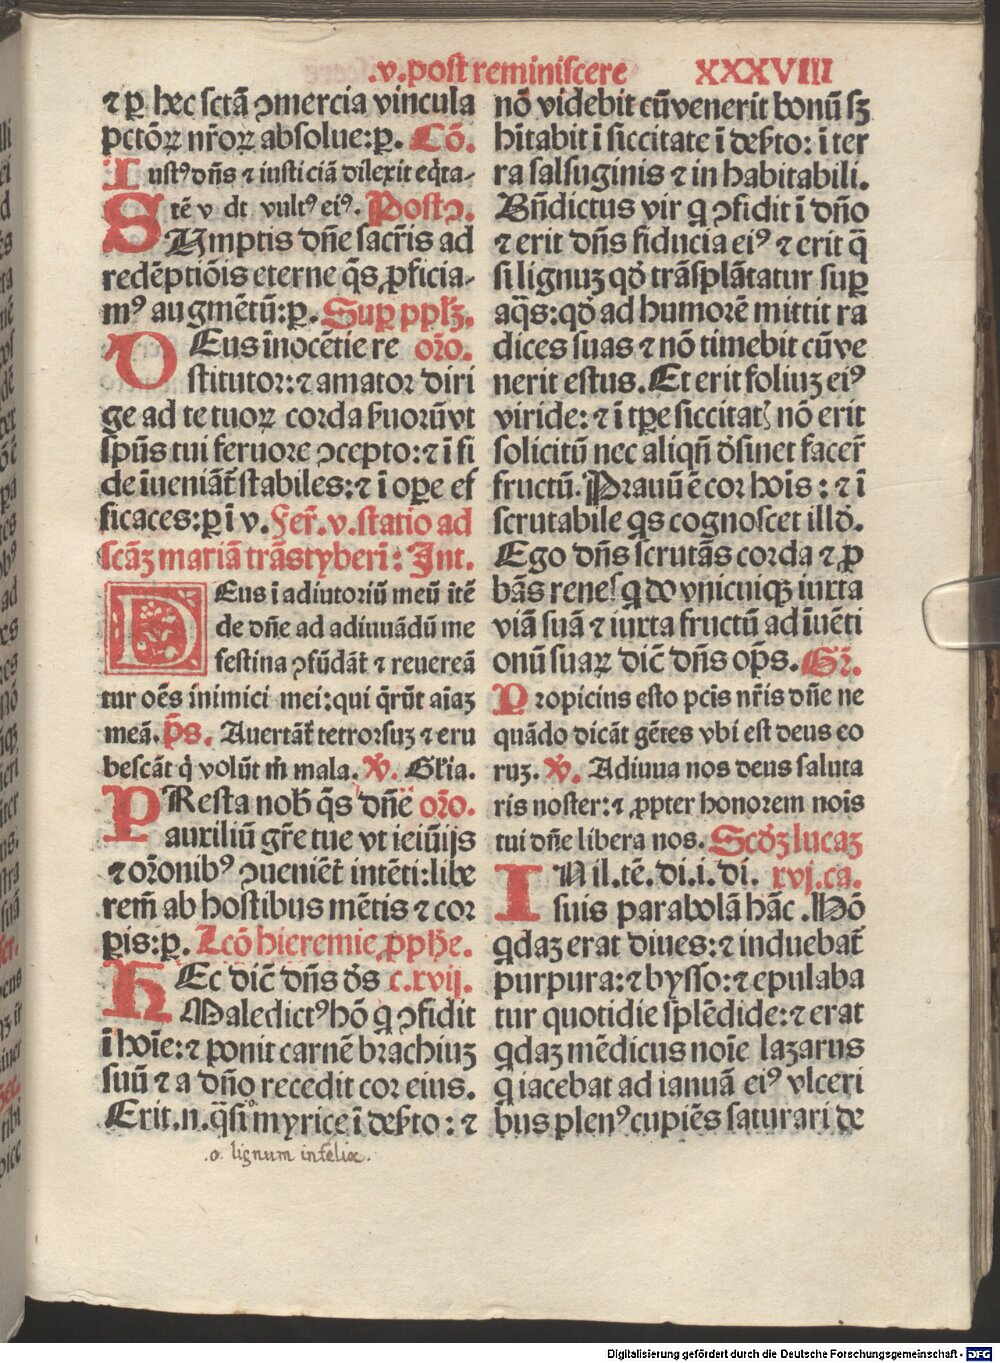 .v. post reminiscere XXXVIII
⁊ ꝑ hec sctã ꝯmercia vincula
pctõꝝ nr̃oꝝ absolue: ꝑ. Cõ.
Iustꝰ dñs ⁊ iusticiã dilexit eq̇ta-
tẽ v dt vultꝰ eiꝰ. Postꝯ.
SUmptis dñe sacr̃is ad
redẽptiõis eterne q̃s ꝓficia-
mꝰ augmẽtũ: ꝑ. Suꝑ ppl̃ʒ.
DEus inocẽtie re oro.
stitutor: ⁊ amator diri
ge ad te tuoꝝ corda ẜuorũ vt
spũs tui feruore ꝯcepto: ⁊ ĩ fi
de ĩueniãt̃ stabiles: ⁊ ĩ oꝑe ef
ficaces: ꝑ ĩ v. Fer̃. v. statio ad
scãʒ mariã trãstyberĩ: Int.
DEus ĩ adiutoriũ meũ itẽ
de dñe ad adiuuãdũ me
festina ꝯfũdãt̃ ⁊ reuereã
tur oẽs inimici mei: qui q̃rũt aĩaʒ
meã. p̃s. Auertãt̃ retrorsuʒ ⁊ eru
bescãt q̇ volũt m̃ mala. ꝟ. Gl̃ia.
PResta nob̃ q̃s dñe oro.
auxiliũ gr̃e tue vt ieiũijs
⁊ or̃onibꝰ ꝯueniẽt̃ intẽti: libe
rem̃ ab hostibus mẽtis ⁊ cor
ꝑis: ꝑ. Lcõ hieremie ꝓphe.
HEc dic̃ dñs d̃s c. xvij.
Maledictꝰ hõ q ꝯfidit
ĩ hoĩe: ⁊ ponit carnẽ brachiuʒ
suũ ⁊ a dño recedit cor eius.
Erit .n. q̃si myrice ĩ deẜto: ⁊
.o. lignum infelix.
nõ videbit cũ venerit bonũ sʒ
hĩtabit ĩ siccitate ĩ deẜto: ĩ ter
ra salsuginis ⁊ in habitabili.
Bñdictus vir q ꝯfidit ĩ dño
⁊ erit dñs fiducia eiꝰ ⁊ erit q̃
si lignuʒ qd̓ trãsplãtatur suꝑ
aq̃s: qd̓ ad humorẽ mittit ra
dices suas ⁊ nõ timebit cũ ve
nerit estus. Et erit foliuʒ eiꝰ
viride: ⁊ ĩ tꝑe siccitatꝭ nõ erit
solicitũ nec aliqñ d̓sinet facer̃
fructũ. Prauũ ẽ cor hoĩs: ⁊ ĩ
scrutabile qs cognoscet illd̓.
Ego dñs scrutãs corda ⁊ ꝓ
bãs renes q do vnicuiqꝫ iuxta
viã suã ⁊ iuxta fructũ adĩuẽti
onũ suaꝝ dic̃ dñs op̃s. Gr̃.
Propicius esto pctis nr̃is dñe ne
quãdo dicãt gẽtes vbi est deus eo
ruʒ. ꝟ. Adiuua nos deus saluta
ris noster: ⁊ ꝓpter honorem nois
tui dñe libera nos. Scd̓ʒ lucaʒ
IN il. tẽ. di. i. di. xvj. ca.
suis parabolã hãc. Hõ
qdaʒ erat diues: ⁊ induebat̃
purpura: ⁊ bysso: ⁊ epulaba
tur quotidie splẽdide: ⁊ erat
qdaʒ mẽdicus noĩe lazarus
q iacebat ad ianuã eiꝰ vlceri
bus plenꝰ cupiẽs saturari de
Digitalisierung gefördert durch die Deutsche Forschungsgemeinschaft - DFG